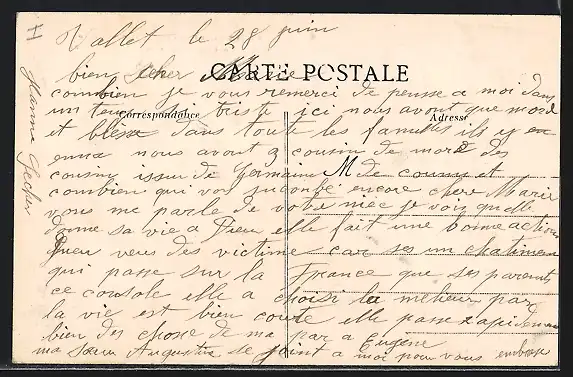 Vallet le 28 juin
bien cher Marie
CARTE POSTALE
combien je vous remerci de pensse a moi dans
un temps si triste ici nous avont que mord
Correspondance
Adresse
et blesse dans toute les familles ils y en
enna nous avont 3 cousin de mord des
cousins issu de Germains M de couny et
combien qui von sucombé encore chere Marie
vous me parle de votre niece je vois quelle
donne sa vie a Dieu elle fait une bonne action
Dieu veus des victime car ses un chatiment
qui passe sur la France que ses parents
ce console elle a choisi la melieur par
la vie est bien courte elle passe rapidement
bien des chose de ma par a Eugene
ma sœur Augustine se joint a moi pour vous embrasse